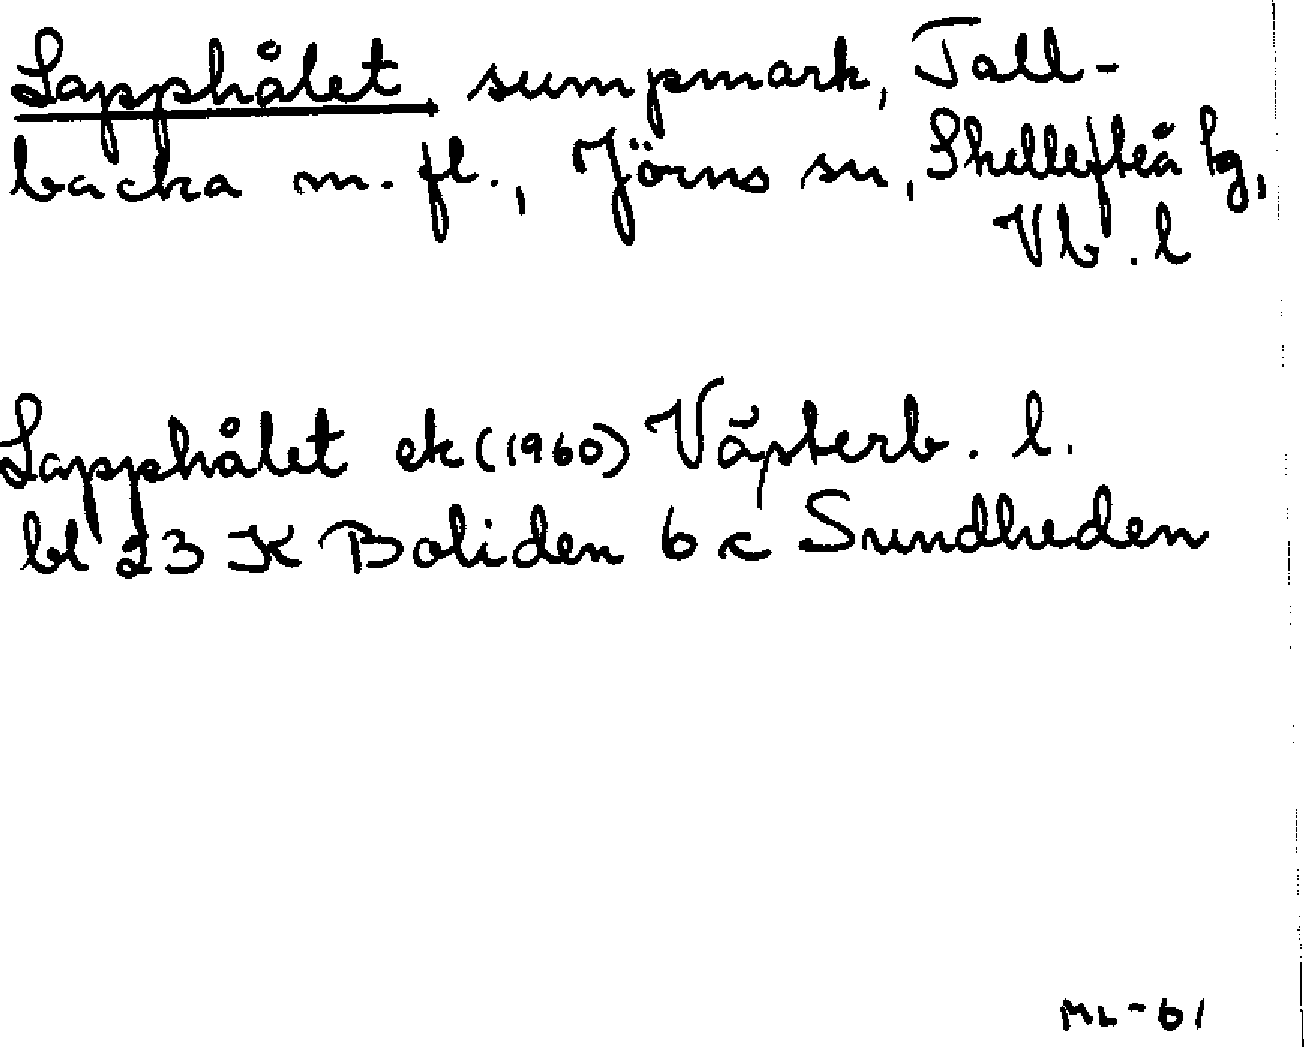 Lapphålet sumpmark, Tall-
backa m. fl., Jörns sn, Skellefteå lg,
Vb. l
Lapphålet ek (1960) Västerb. l.
bl 23 K Boliden 6 c Sundheden
ML-61